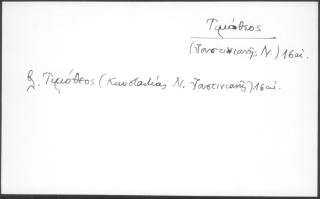 Τιμόθεος
(Ἰουστινιανῆς Ν.) 16 αἰ.
βλ. Τιμόθεος (Κωνσταλίας Ν. Ἰουστινιανῆς) 16 αἰ.